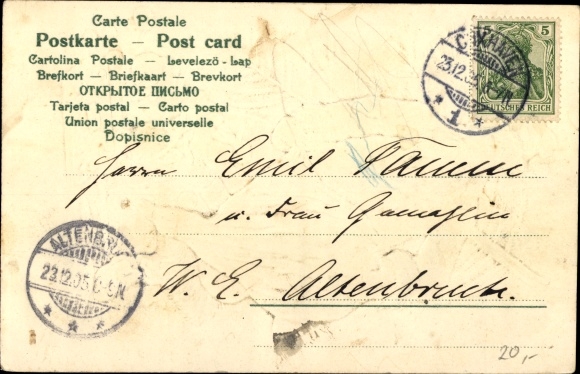 Carte Postale
Postkarte — Post card
Cartolina Postale — Levelezö-Lap
Brefkort — Briefkaart — Brevkort
ОТКРЫТОЕ ПИСЬМО
Tarjeta postal — Carto postal
Union postale universelle
Dopisnice
5
DEUTSCHES REICH
23.12.05
* 1 *
Herrn Emil
u. Frau Gemahlin
W. E. Altenbruch.
ALTENBR
23.12.05
* * *
20,-